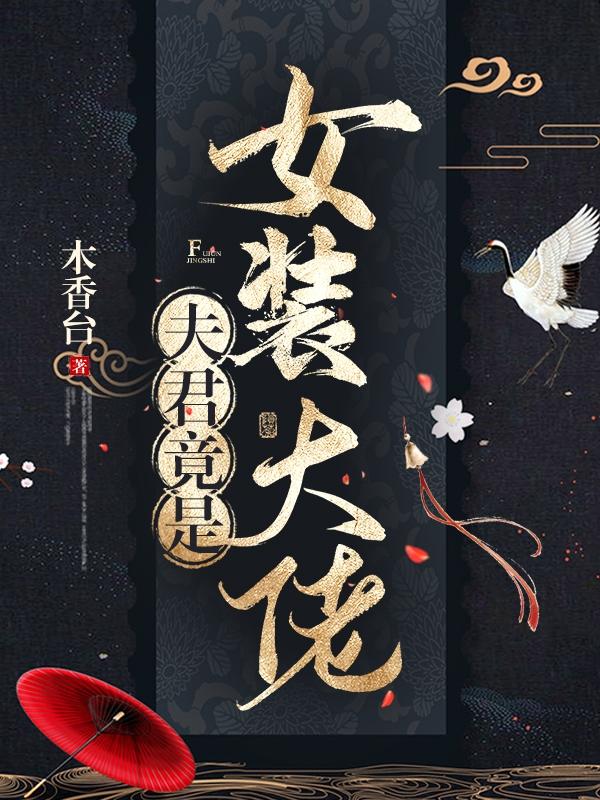 夫君竟是
女装大佬
FUJUN
JINGSHI
木香台 著